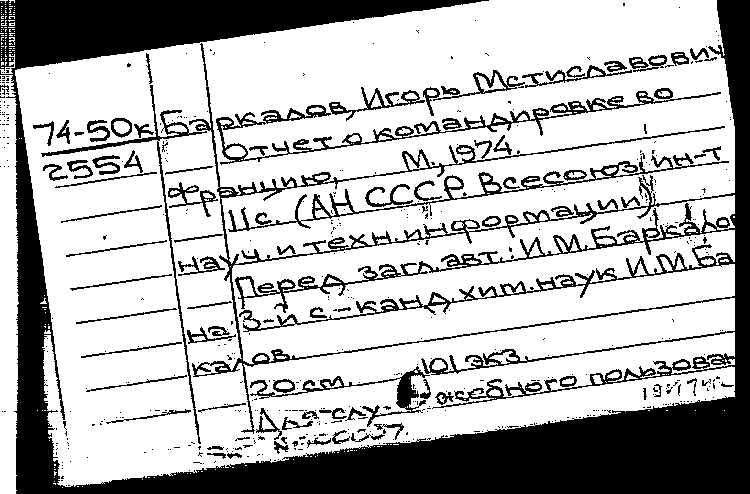 74-50к Баркалов, Игорь Мстиславович
2554 Отчет о командировке во
Францию. М., 1974.
11 с. (АН СССР. Всесоюз. ин-т
науч. и техн. информации)
Перед загл. авт.: И.М. Баркалов
на 3-й с. - канд. хим. наук И.М. Ба
калов.
20 см. 101 экз.
Для слу- жебного пользован